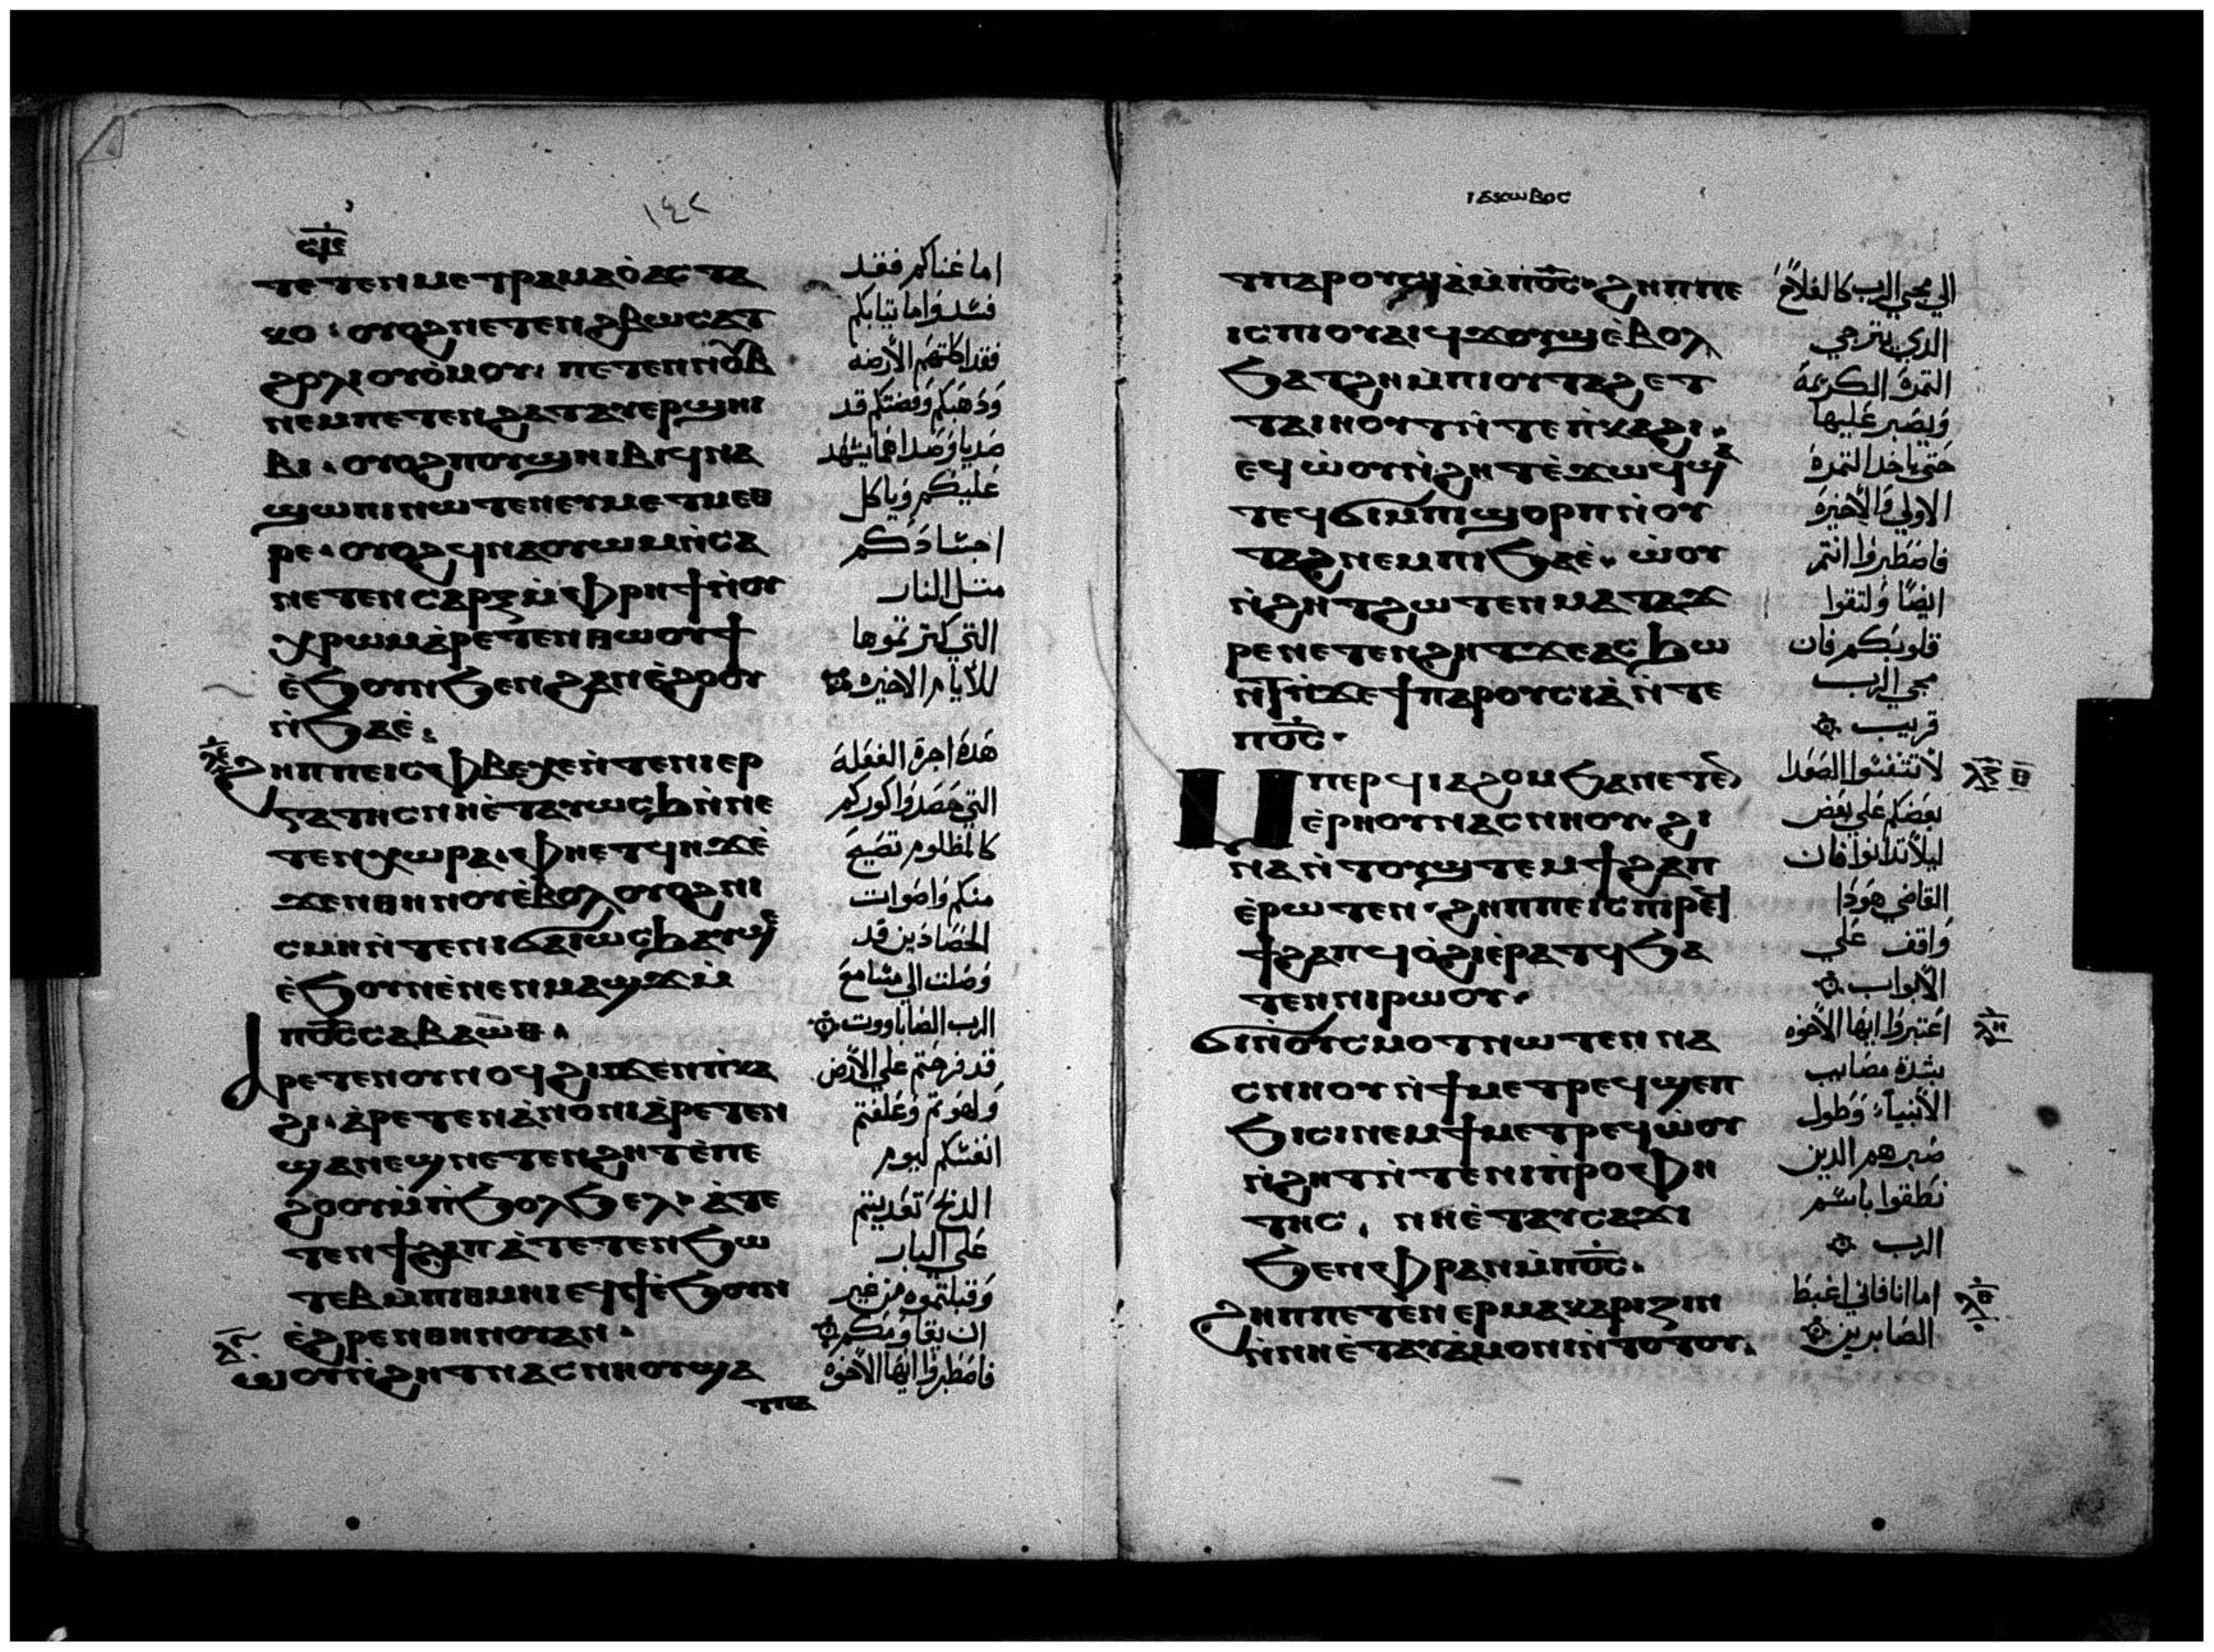 ⲥ̅ⲓ̅ⲉ̅
١٤٢
ⲧⲉⲧⲉⲛⲙⲉⲧⲣⲁⲙⲁⲟ̀ⲁⲥⲧⲁ
ⲕⲟ · ⲟⲩⲟϩⲛⲉⲧⲉⲛϩⲃⲱⲥⲁⲩ
ϩⲣϩⲗⲓⲟⲩⲟ̀ⲙⲟⲩ · ⲡⲉⲧⲉⲛⲛⲟⲩⲃ
ⲛⲉⲙⲡⲉⲧⲉⲛϩⲁⲧⲁⲩⲉⲣϣⲏⲓ
ⲃⲓ · ⲟⲩⲟϩⲡⲟⲩϣⲏⲓⲃⲓϥⲛⲁ
ϣⲱⲡⲓⲛⲱⲧⲉⲛⲉⲩⲙⲉⲧⲙⲉⲑ
ⲣⲉ · ⲟⲩⲟϩϥⲛⲁⲟⲩⲱⲙⲛ̀ⲥⲁ
ⲛⲉⲧⲉⲛⲥⲁⲣⲝⲙ̀ⲫⲣⲏϯⲛ̀ⲟⲩ
ⲭⲣⲱⲙⲁ̀ⲣⲉⲧⲉⲛⲑⲱⲟⲩϯ
ⲉ̀ϧⲟⲩⲛϧⲉⲛϩⲁⲛⲉ̀ϩⲟⲟⲩ
ⲛ̀ϧⲁⲉ̀ :
ϩⲏⲡⲡⲉⲓⲥⲫⲃⲉⲭⲉⲛ̀ⲧⲉⲛⲓⲉⲣ
ⲅⲁⲧⲏⲥⲛⲏⲉ̀ⲧⲁⲩⲱⲥϧⲛ̀ⲛⲉ
ⲧⲉⲛⲭⲱⲣⲁ · ⲫⲏⲉⲧϥⲏϫⲉ̀
ϫⲉⲛⲑⲏⲛⲟⲩⲉ̀ⲃⲟⲗⲟⲩⲟϩⲛⲓ
ⲥⲙⲏⲛ̀ⲧⲉⲛⲓϭⲁⲓⲱⲥϧⲁⲩϣⲉ
ⲉ̀ϧⲟⲩⲛⲉ̀ⲛⲉⲛⲙⲁϣϫⲙ̀
ⲡⲟ̅ⲥ̅ⲥⲁⲃⲁⲱⲑ ·
ⲁ̀ⲣⲉⲧⲉⲛⲟⲩⲛⲟϥϩⲓϫⲉⲛⲡⲓⲕⲁ
ϩⲓ · ⲁ̀ⲣⲉⲧⲉⲛⲁ̀ⲙⲟⲛⲓⲁ̀ⲣⲉⲧⲉⲛ
ϣⲁⲛⲉϣⲛⲉⲧⲉⲛϩⲏⲧⲉ̀ⲡⲉ
ϩⲟⲟⲩⲙ̀ⲡ̀ϧⲟⲗϧⲉⲗ · ⲁ̀ⲧⲉ
ⲧⲉⲛϯϩⲁⲡⲁ̀ⲧⲉⲧⲉⲛϧⲱ
ⲧⲉⲃⲙ̀ⲡⲓⲑⲙⲏⲓⲉϥϯⲉ̀ϧⲟⲩⲛ
ⲉ̀ϩⲣⲉⲛⲑⲏⲛⲟⲩⲁⲛ ·
ⲱⲟⲩⲛ̀ϩⲏⲧⲛⲁⲥⲛⲏⲟⲩϣⲁ
اما غناكم فقد
فسد واما تيابكم
فقد اكلتهم الأرضه
وَذهَبكم وَفضتكم قد
صَديا وَصَداهما يشهد
عَليكم وَياكل
اجسَادَكم
متل النار
التي كنزتموها
للأيام الاخيره
هَذه اجرة الفعَلة
التي حَصَدوا كوركم
كالمظلوم تصَيح
منكم وَاصَوات
الحصَادَين قد
وَصَلت الي مسَامع
الرب الصَاباووت
قد فرحتم علي الأرض
وَلهَوتم وَعَلفتم
انفسَكم ليوم
الدبح تعَديتم
عَلي البار
وَقبلتموه من غير
ان يقاومكم
فاصَطبروا ايها الاخوَة
ⲧⲡⲁ
ⲓⲁⲕⲱⲃⲟⲥ
ⲧⲡⲁⲣⲟⲩⲥⲓⲁ̀ⲙ̀ⲡⲟ̅ⲥ̅ · ϩⲏⲡⲡⲉ
ⲓⲥⲡⲓⲟⲩⲁⲓϥϫⲟⲩϣⲧⲉ̀ⲃⲟⲗ
ϧⲁⲧϩⲏⲙ̀ⲡⲓⲟⲩⲧⲁϩⲉⲧ
ⲧⲁⲓⲏⲟⲩⲧⲛ̀ⲧⲉⲡ̀ⲕⲁϩⲓ ·
ⲉϥⲱ̀ⲟⲩⲛ̀ϩⲏⲧⲉ̀ϫⲱϥϣⲁ
ⲧⲉϥϭⲓⲙⲡϣⲟⲣⲡⲛ̀ⲟⲩ
ⲧⲁϩⲛⲉⲙⲡⲓϧⲁⲉ̀ · ⲱ̀ⲟⲩ
ⲛ̀ϩⲏⲧϩⲱⲧⲉⲛⲙⲁⲧⲁϫ
ⲣⲉⲛⲉⲧⲉⲛϩⲏⲧϫⲉⲁⲥϧⲱ
ⲛⲧⲛ̀ϫⲉϯⲡⲁⲣⲟⲩⲥⲓⲁ̀ⲛ̀ⲧⲉ
ⲡⲟ̅ⲥ̅ ·
ⲙⲡⲉⲣϥⲓⲁϩⲟⲙϧⲁⲛⲉⲧⲉⲛ
ⲉ̀ⲣⲏⲟⲩⲛⲁⲥⲛⲏⲟⲩ · ϩⲓ
ⲛⲁⲛ̀ⲧⲟⲩϣⲧⲉⲙϯϩⲁⲡ
ⲉ̀ⲣⲱⲧⲉⲛ · ϩⲏⲡⲡⲉⲓⲥⲡⲓⲣⲉϥ
ϯϩⲁⲡϥⲟ̀ϩⲓⲉ̀ⲣⲁⲧϥϧⲁ
ⲧⲉⲛⲛⲓⲣⲱⲟⲩ ·
ϭⲓⲛ̀ⲟⲩⲥⲙⲟⲧⲛⲱⲧⲉⲛⲛⲁ
ⲥⲛⲏⲟⲩⲛ̀ϯⲙⲉⲧⲣⲉϥϣⲉⲡ
ϧⲓⲥⲓⲛⲉⲙϯⲙⲉⲧⲣⲉϥⲱ̀ⲟⲩ
ⲛ̀ϩⲏⲧⲛ̀ⲧⲉⲛⲓⲡ̀ⲣⲟⲫⲏ
ⲧⲏⲥ · ⲛⲏⲉ̀ⲧⲁⲩⲥⲁϫⲓ
ϧⲉⲛⲫⲣⲁⲛⲙ̀ⲡⲟ̅ⲥ̅ ·
ϩⲏⲡⲡⲉⲧⲉ̀ⲛⲉⲣⲙⲁⲕⲁⲣⲓⲍⲓⲛ
ⲛ̀ⲛⲏⲉ̀ⲧⲁⲩⲁ̀ⲙⲟⲛⲓⲛ̀ⲧⲟⲧⲟⲩ ·
الي مجي الرب كالفلاح
الدي يترجي
التمرة الكريمة
وَيصَبر عَليها
حتي ياخد التمرة
الاولي وَالأخيرة
فاصَطبروا انتم
ايضًا وَلتقوا
قلوبكم فان
مجي الرب
قريب
لأتتنفسَوا الصَعَدا
بعَضكم عَلي بعَض
ليلأ تدانوا فان
القاضي هَودَا
وَاقف عَلي
الأبواب
اعَتبروا ايها الأخوَه
بشدة مصَايب
الأنبياء وَطول
صَبرهم الدين
نَطقوا باسَم
الرب
اما انا فاني اغبط
الصَابرين